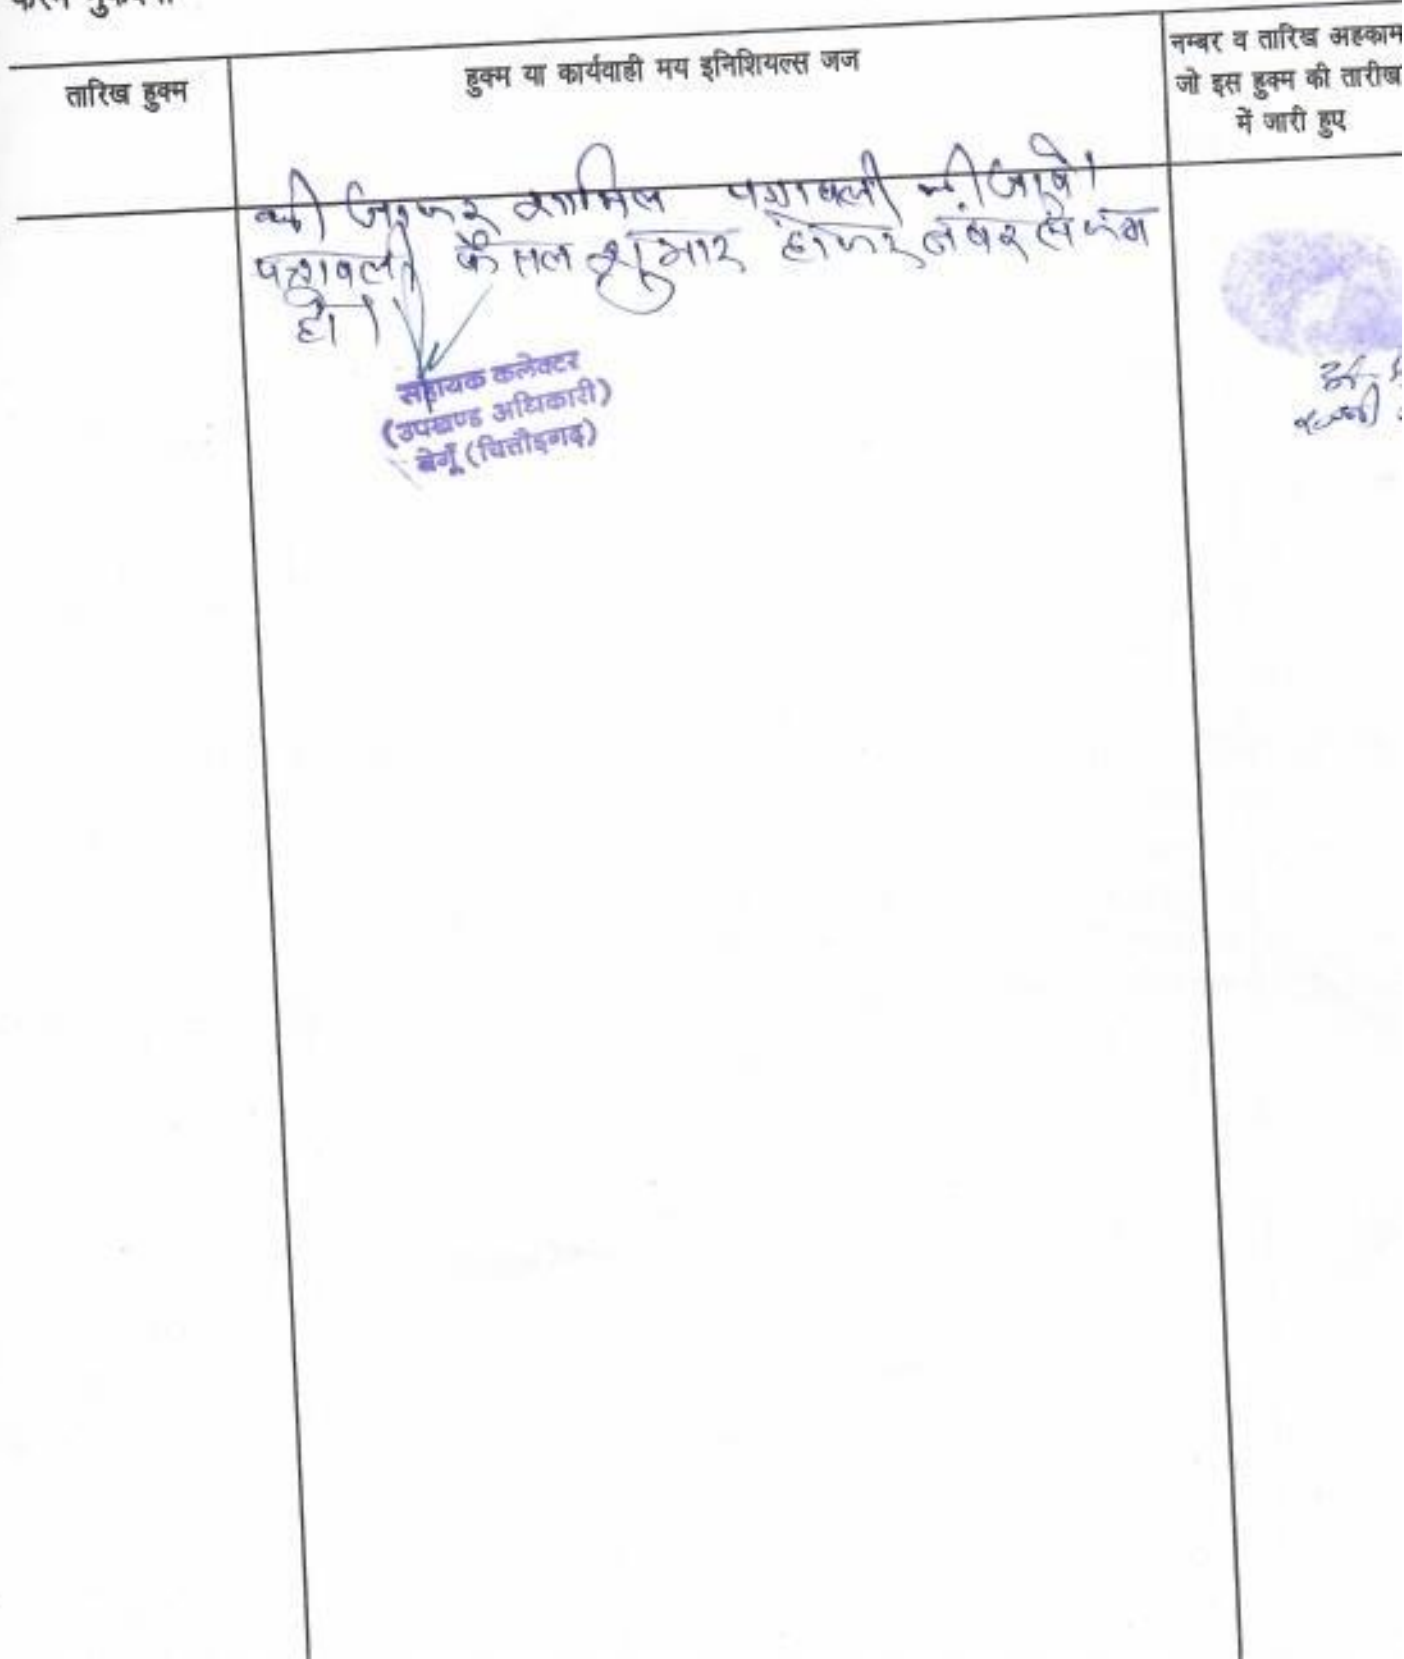 तारिख हुक्म
हुक्म या कार्यवाही मय इनिशियल्स जज
नम्बर व तारिख अहकाम
जो इस हुक्म की तारीख
में जारी हुए
की जाकर शामिल पत्रावली की जावे।
पत्रावली फैसल शुमार होकर नंबर से कम
हो।
सहायक कलेक्टर
(उपखण्ड अधिकारी)
बेगूँ (चित्तौड़गढ़)